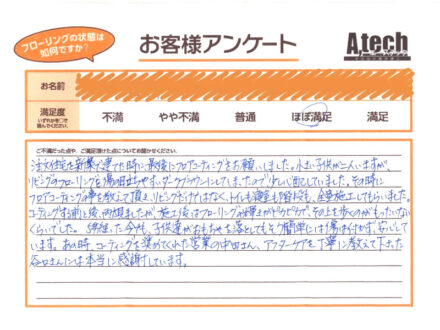 フローリングの状態は
如何ですか?
お客様アンケート
A.tech
お名前
満足度
いずれかを○で
囲んでください。
不満 やや不満 普通 ほぼ満足 満足
ご不満だった点や、ご満足頂けた点についてお聞かせください。
注文住宅を新築で建てた時に、最後にフロアコーティングをお願いしました。小さい子供が二人いますが、
リビングのフローリングを傷が目立ちやすいダークブラウンにしてしまったので少し心配していました。その時に
フロアコーティングの事を教えて頂き、リビングだけではなく、トイレも寝室も階段も、全室施工してもらいました。
コーティングする前と後、両方見ましたが、施工後はフローリングの状態がピカピカで、その上を歩くのがもったいない
くらいでした。 経った今でも、子供達がおもちゃを落としてもそう簡単には傷は付かず、
います。あの時、コーティングを奨めてくれた営業の中田さん、アフターケアを丁寧に教えて下さった
谷口さんには本当に感謝しています。